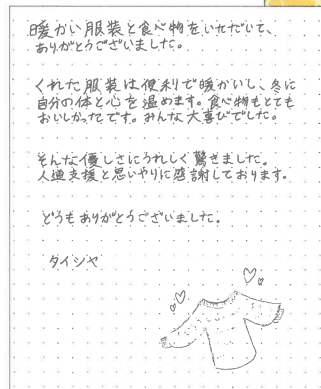 暖かい服装と食べ物をいただいて、
ありがとうございました。
くれた服装は便利で暖かいし、冬に
自分の体と心を温めます。食べ物もとても
おいしかったです。みんな大喜びでした。
そんな優しさにうれしく驚きました。
人道支援と思いやりに感謝しております。
どうもありがとうございました。
タイシヤ